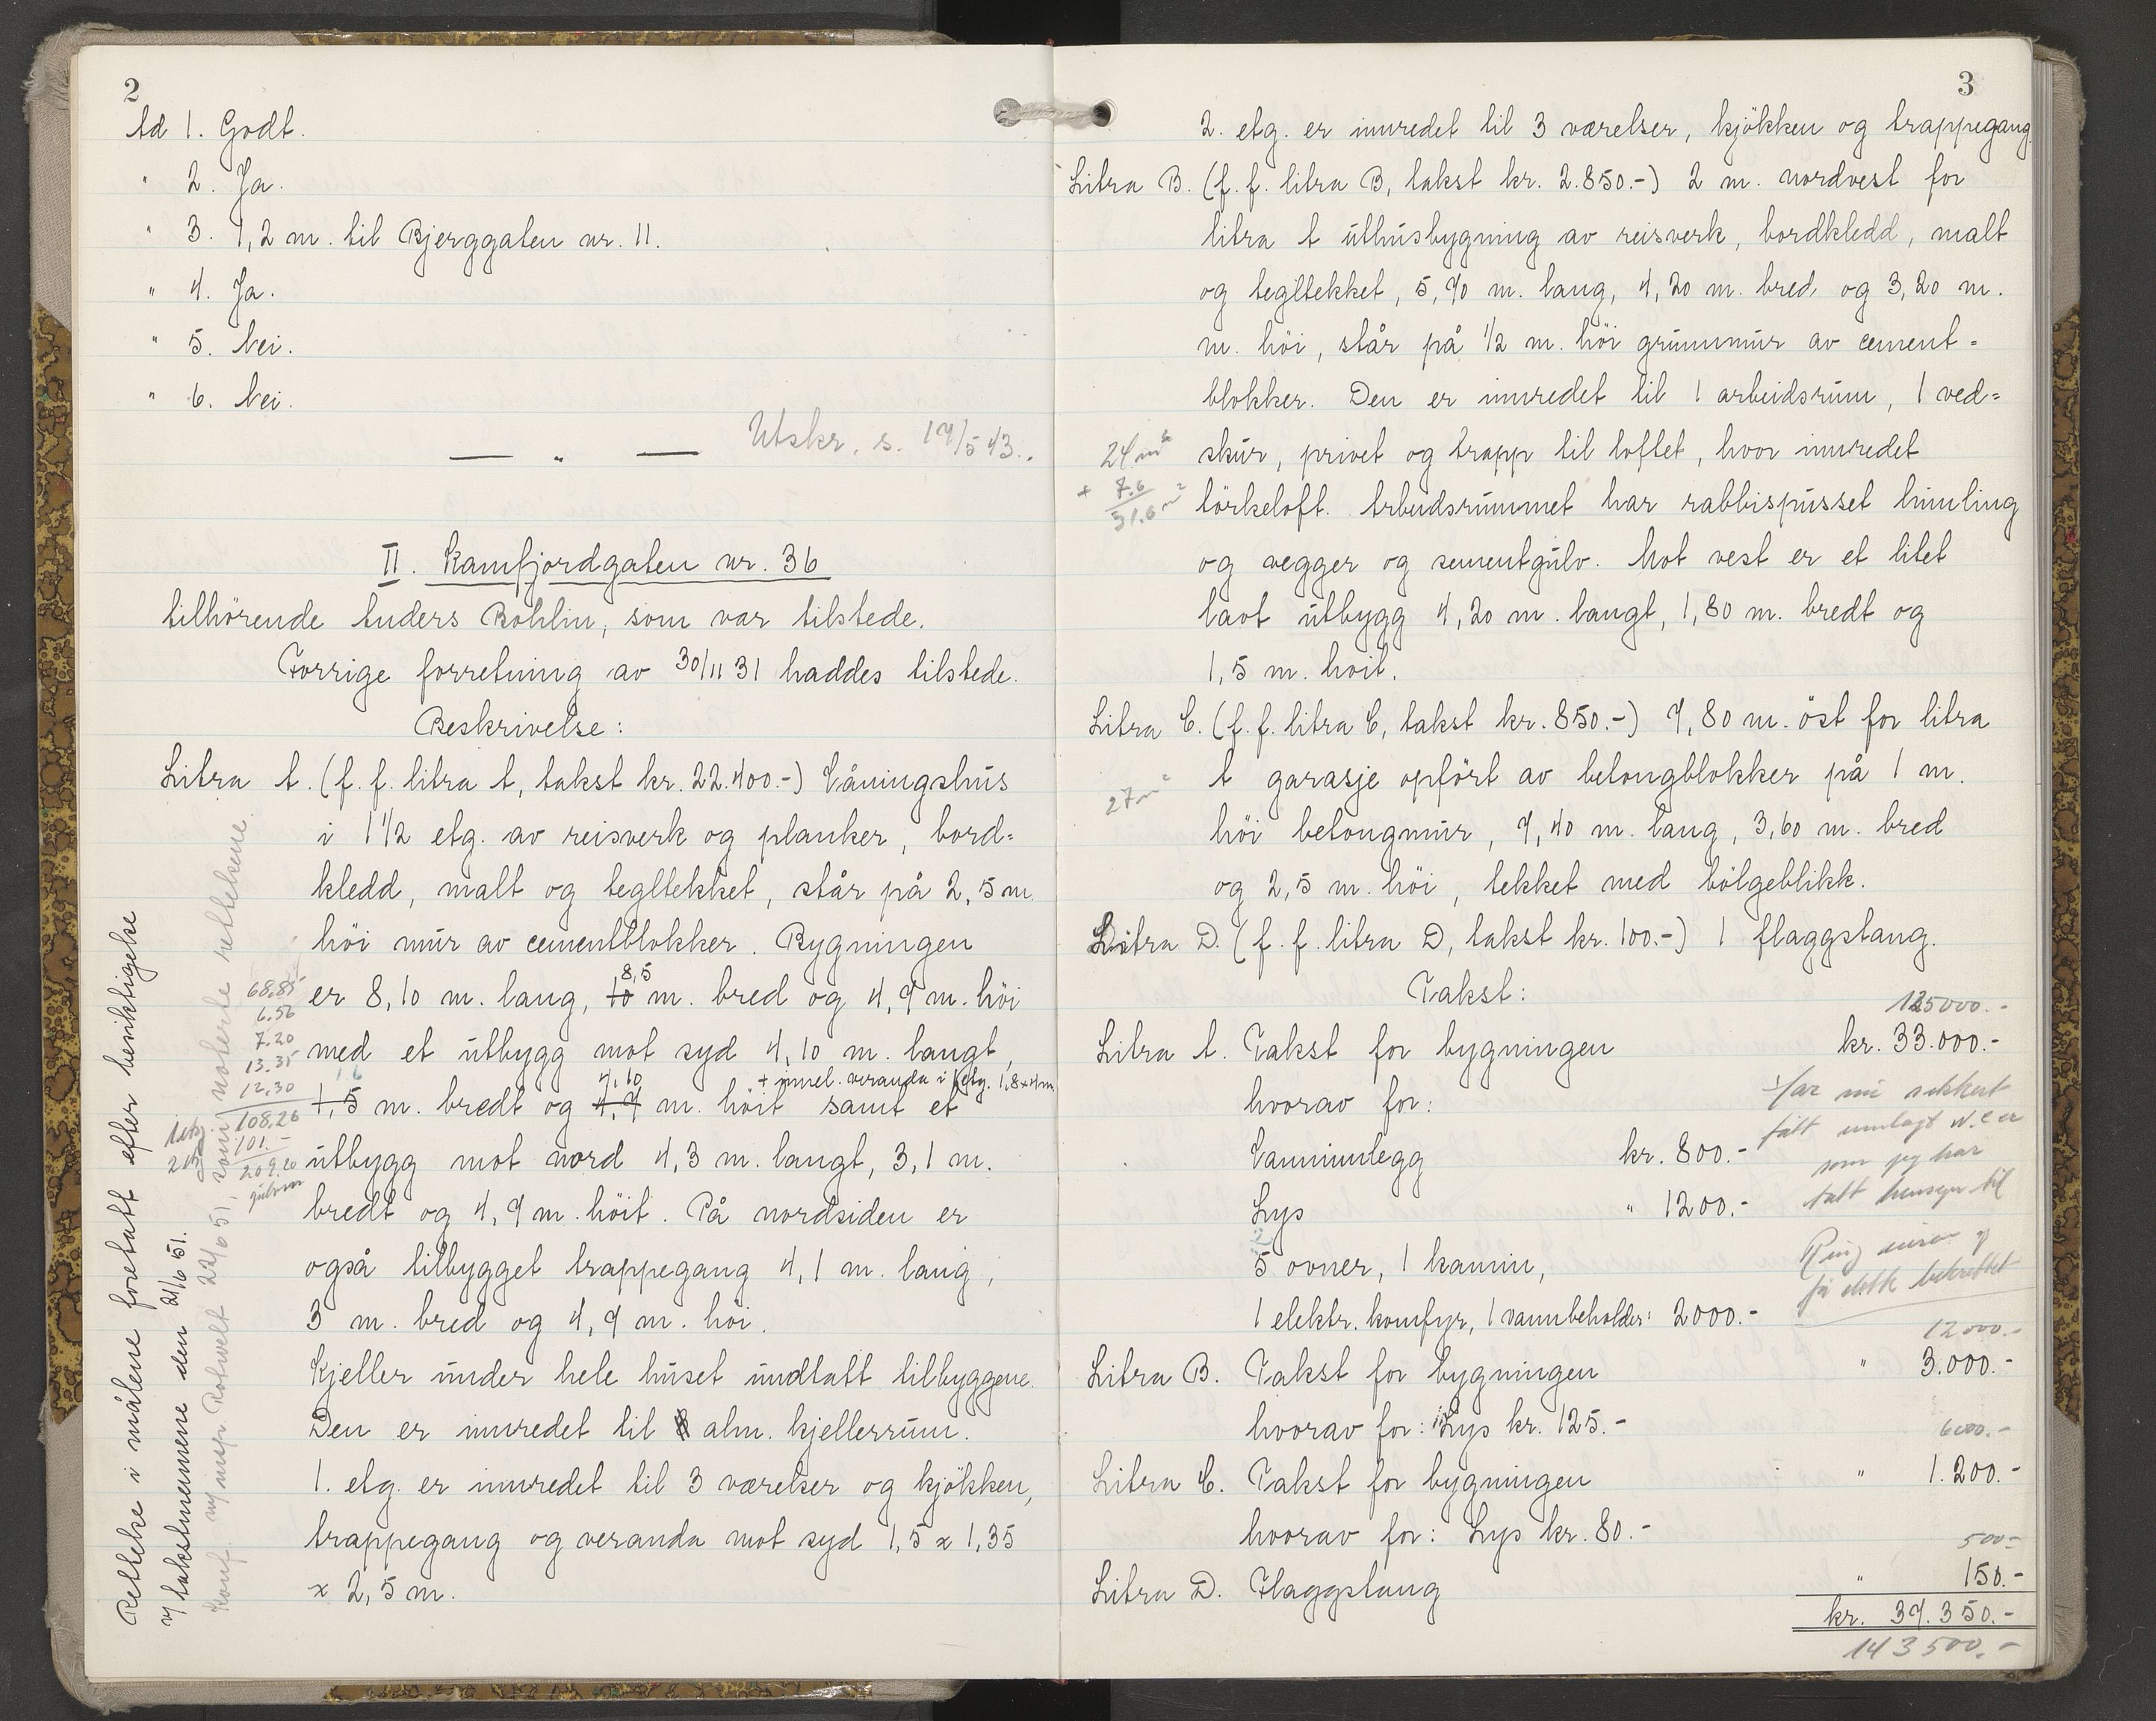 2
Ad 1. Godt.
" 2. Ja.
" 3. 1,2 m. til Bjerggaten nr. 11.
" 4. Ja.
" 5. Nei.
" 6. Nei.
— " — Utskr. s. 17/5 43.
II. Kamfjordgaten nr. 36
tilhörende Anders Bohlin, som var tilstede.
Forrige forretning av 30/11 31 haddes tilstede.
Beskrivelse:
Litra A. (f. f. litra A, takst kr. 22.400.-) Våningshus
i 1 1/2 etg. av reisverk og planker, bord=
kledd, malt og tegltekket, står på 2,5 m.
höi mur av cementblokker. Bygningen
8,5
er 8,10 m. lang, 10 m. bred og 4,7 m. höi
med et utbygg mot syd 4,10 m. langt,
1.6 7,10 + innel. veranda i 1 etg. 1,8x4m
1,5 m. bredt og 4,7 m. höit samt et
utbygg mot nord 4,3 m. langt, 3,1 m.
bredt og 4,7 m. höit. På nordsiden er
også tilbygget trappegang 4,1 m. lang,
3 m. bred og 4,7 m. höi.
Kjeller under hele huset undtatt tilbyggene.
Den er innredet til alm. kjellerrum.
1. etg. er innredet til 3 værelser og kjökken,
trappegang og veranda mot syd 1,5 x 1,35
x 2,5 m.
68.85
6.56
7.20
13.35
12.30
1 etg. 108,26
2 etg. 101.-
209.20
gulvm
Rettelse i målene foretatt efter besiktigelse
v/ takstmennene den 21/6 51.
Konf. m/ insp. Rotwelt 22/6 51, som noterte rettelsene.
3
2. etg. er innredet til 3 værelser, kjökken og trappegang.
Litra B. (f. f. litra B, takst kr. 2.850.-) 2 m. nordvest for
litra A uthusbygning av reisverk, bordkledd, malt
og tegltekket, 5,70 m. lang, 4,20 m. bred og 3,20 m.
m. höi, står på 1/2 m. höi grunnmur av cement=
blokker. Den er innredet til 1 arbeidsrum, 1 ved=
skur, privet og trapp til loftet, hvor innredet
törkeloft. Arbeidsrummet har rabbispusset himling
og vegger og sementgulv. Mot vest er et litet
lavt utbygg 4,20 m. langt, 1,80 m. bredt og
1,5 m. höit.
24 m2
+ 7.6
31.6 m2
Litra C. (f. f. litra C, takst kr. 850.-) 7,80 m. öst for litra
A garasje opfört av betongblokker på 1 m.
27 m2
höi betongmur, 7,40 m. lang, 3,60 m. bred
og 2,5 m. höi, tekket med bölgeblikk.
Litra D. (f. f. litra D, takst kr. 100.-) 1 flaggstang.
Takst:
125000.-
Litra A. Takst for bygningen kr. 33.000.-
hvorav for:
Vanninnlegg kr. 800.-
Lys " 1200.-
5 ovner, 1 kamin,
1 elektr. komfyr, 1 vannbeholder: 2000.-
Har nu sikkert
fått innlagt W.C er
som jeg har
tatt hensyn til
Ring
få dette bekreftet
12000.-
Litra B. Takst for bygningen " 3.000.-
hvorav for: Lys kr. 125.-
6000.-
Litra C. Takst for bygningen " 1.200.-
hvorav for: Lys kr. 80.-
500.-
Litra D. Flaggstang " 150.-
kr. 37.350.-
143500.-